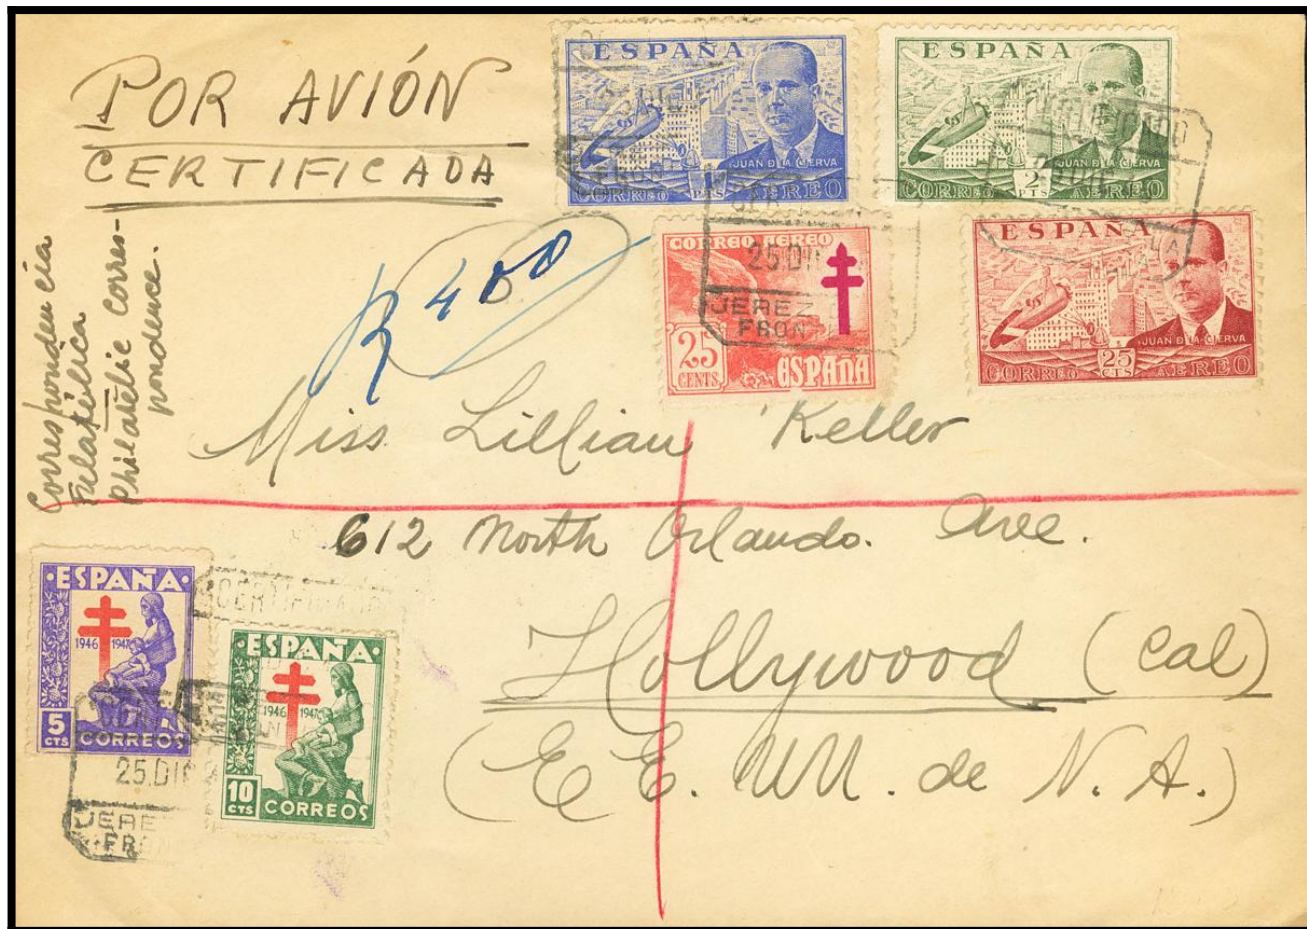 POR AVIÓN
CERTIFICADA
Correspondencia
Filatélica
Philatelic corres-
pondence.
R 400
ESPAÑA
JUAN D LA CIERVA
CORREO 1 PTS AEREO
ESPAÑA
JUAN D LA CIERVA
CORREO 2 PTS AEREO
CORREO AEREO
25 CENTS
ESPAÑA
25 DIC
JEREZ
FRON
ESPAÑA
JUAN D LA CIERVA
CORREO 25 CTS AEREO
Miss Lillian Keller
612 North Orlando. Ave.
Hollywood (Cal)
(E E. UU. de N. A.)
·ESPAÑA·
1946 1947
5 CTS CORREOS
25.DIC
JEREZ
FRON
CERTIFICADO
·ESPAÑA·
1946 1947
10 CTS CORREOS